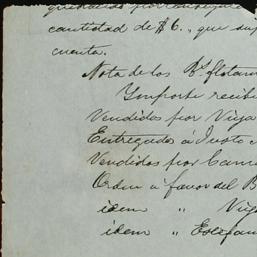 cantidad de $6., que sup
cuenta.
Nota de los Bs. flotan
Importe recibi
Vendidos por Viga
Entregados á Justo
Vendidos por Cam
Orden á favor del B
idem " Vig
idem " Estefan